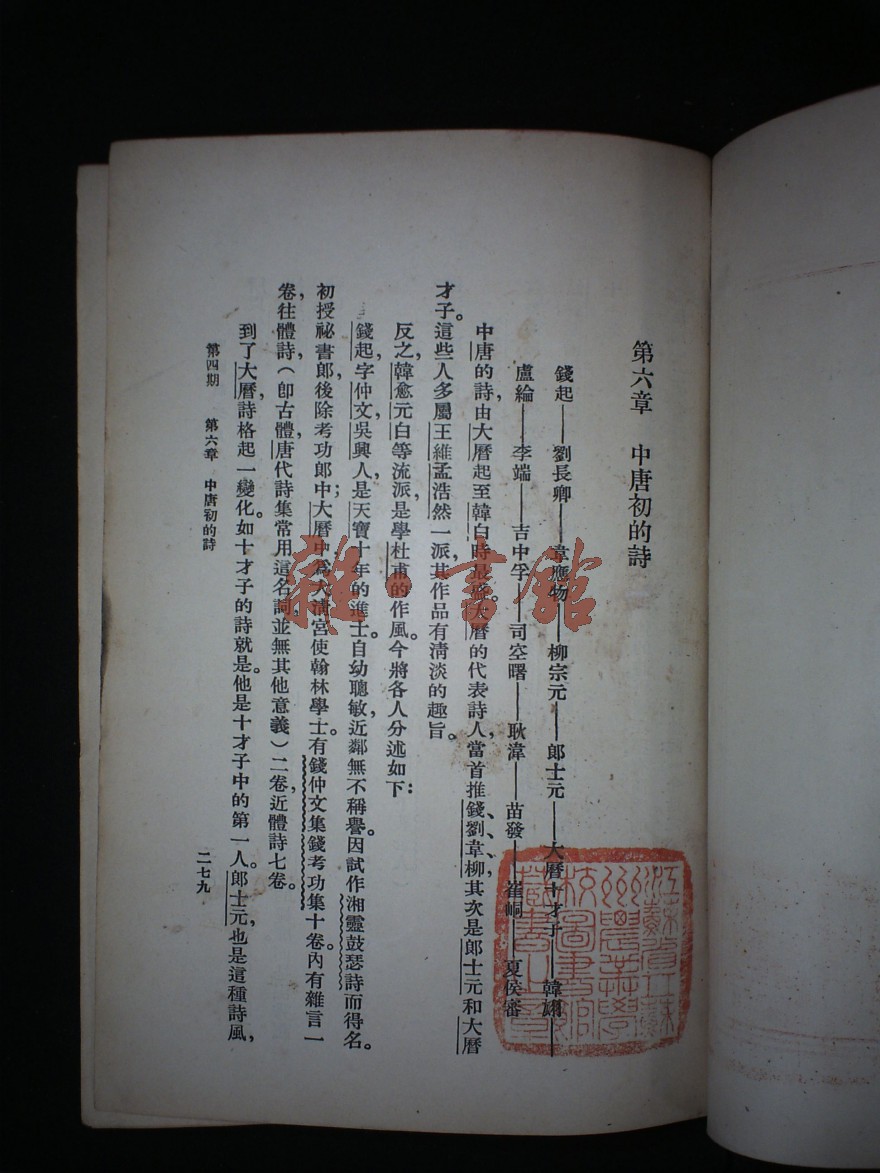 第六章　中唐初的詩
錢起——劉長卿——韋應物——柳宗元——郎士元——大曆十才子——韓翃——
盧綸——李端——吉中孚——司空曙——耿湋——苗發——崔峒——夏侯審
中唐的詩，由大曆起至韓白時最盛。大曆的代表詩人，當首推錢、劉、韋、柳，其次是郎士元和大曆
才子。這些人多屬王維孟浩然一派，其作品有淸淡的趣旨。
反之，韓愈元白等流派，是學杜甫的作風。今將各人分述如下：
錢起，字仲文，吳興人，是天寶十年的進士。自幼聰敏，近鄰無不稱譽。因試作湘靈鼓瑟詩而得名。
初授祕書郎，後除考功郎中；大曆中爲大淸宮使翰林學士。有錢仲文集錢考功集十卷。內有雜言一
卷，往體詩（卽古體，唐代詩集常用這名詞，並無其他意義）二卷，近體詩七卷。
到了大曆，詩格起一變化。如十才子的詩就是。他是十才子中的第一人。郎士元，也是這種詩風，
第四期　第六章　中唐初的詩
二七九
雜·書館
江蘇省立蘇
州農業學
校圖書館
藏書之章